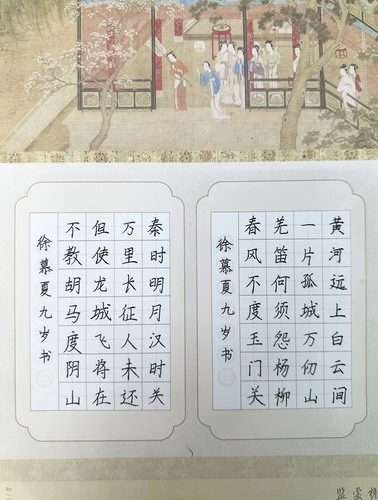 黄河远上白云间
一片孤城万仞山
羌笛何须怨杨柳
春风不度玉门关
徐慕夏九岁书
秦时明月汉时关
万里长征人未还
但使龙城飞将在
不教胡马度阴山
徐慕夏九岁书